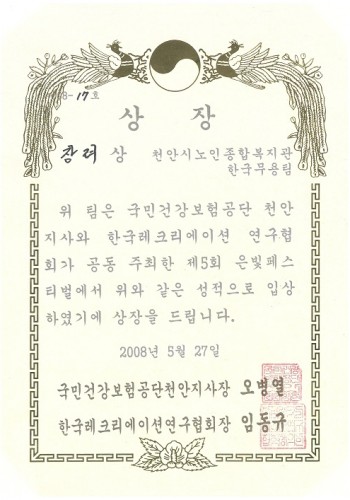 08-17호
상 장
장려 상 천안시노인종합복지관
한국무용팀
위 팀은 국민건강보험공단 천안
지사와 한국레크리에이션 연구협
회가 공동 주최한 제5회 은빛페스
티벌에서 위와 같은 성적으로 입상
하였기에 상장을 드립니다.
2008년 5월 27일
국민건강보험공단천안지사장 오병열
한국레크리에이션연구협회장 임동규